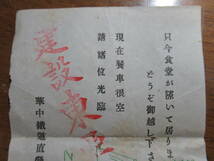 只今食堂が隙いて居りま
どうぞ御越し下さ
現在餐車很空
請諸位光臨
建設東
華中鐵道